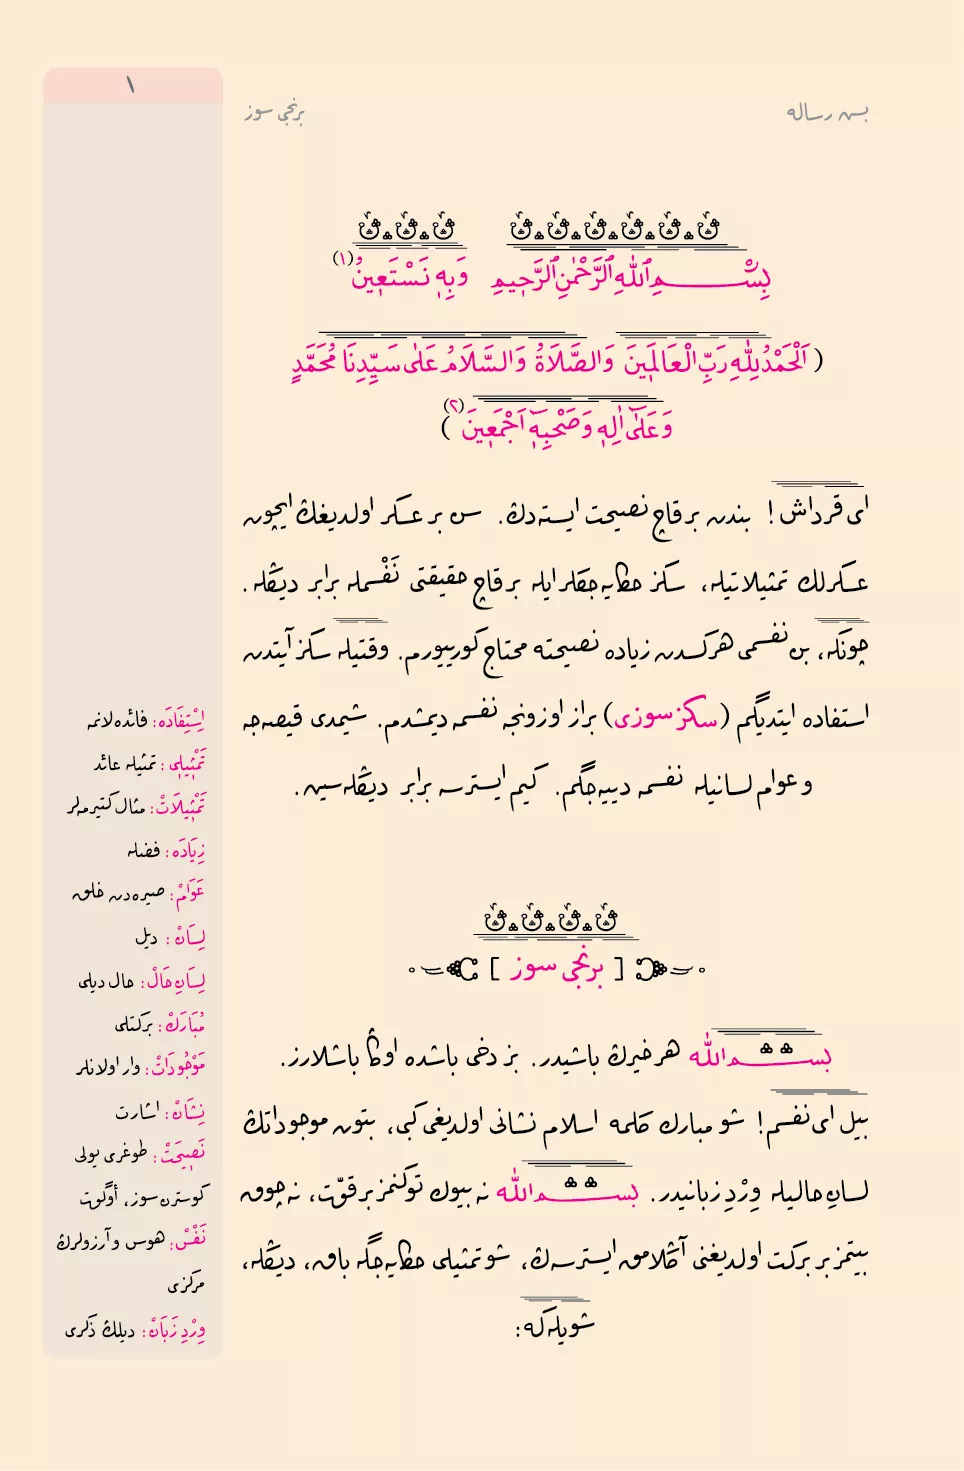 ١
بسی رساله
برنجی سوز
بِسْمِ ٱللّٰهِ ٱلرَّحْمٰنِ ٱلرَّحِيمِ وَبِهٖ نَسْتَعٖينُ (١)
( اَلْحَمْدُ لِلّٰهِ رَبِّ الْعَالَمٖينَ وَالصَّلَاةُ وَالسَّلَامُ عَلٰى سَيِّدِنَا مُحَمَّدٍ
وَعَلٰٓى اٰلِهٖ وَصَحْبِهٖٓ اَجْمَعٖينَ (٢) )
ای قرداش! بندن برقاچ نصیحت ایسته‌دڭ. سن بر عسكر اولدیغڭ ایچون
عسكرلك تمثیلاتیله، سكز حكایه‌جقلر ایله برقاچ حقیقتی نَفْسمله برابر دیڭله.
چونكه، بن نفسمی هركسدن زیاده نصیحته محتاج كورییورم. وقتیله سكز آیتدن
استفاده ایتدیگم (سكز سوزی) براز اوزونجه نفسمه دیمشدم. شیمدی قیصه‌جه
و عوام لسانیله نفسمه دییه‌جگم. كیم ایسترسه برابر دیڭله‌سین.
[ برنجی سوز ]
بسم الله هر خیرڭ باشیدر. بز دخی باشده اوڭا باشلارز.
بیل ای نفسم! شو مبارك كلمه اسلام نشانی اولدیغی كبی، بتون موجوداتڭ
لسانِ حالیله وِرْدِ زبانیدر. بسم الله نه بیوك توكنمز بر قوّت، نه چوق
بیتمز بر بركت اولدیغنی آڭلامق ایسترسه‌ڭ، شو تمثیلی حكایه‌جگه باق، دیڭله،
شویله كه:
اِسْتِفَادَه: فائده‌لانمه
تَمْثٖيلٖی: تمثیله عائد
تَمْثٖيلَاتْ: مثال كتیرمه‌لر
زِيَادَه: فضله
عَوَامْ: صیره‌دن خلق
لِسَانْ: دیل
لِسَانِ حَالْ: حال دیلی
مُبَارَكْ: بركتلی
مَوْجُودَاتْ: وار اولانلر
نِشَانْ: اشارت
نَصٖيحَتْ: طوغری یولی
كوسترن سوز، أوگوت
نَفْسْ: هوس و آرزولرڭ
مركزی
وِرْدِ زَبَانْ: دیلڭ ذكری